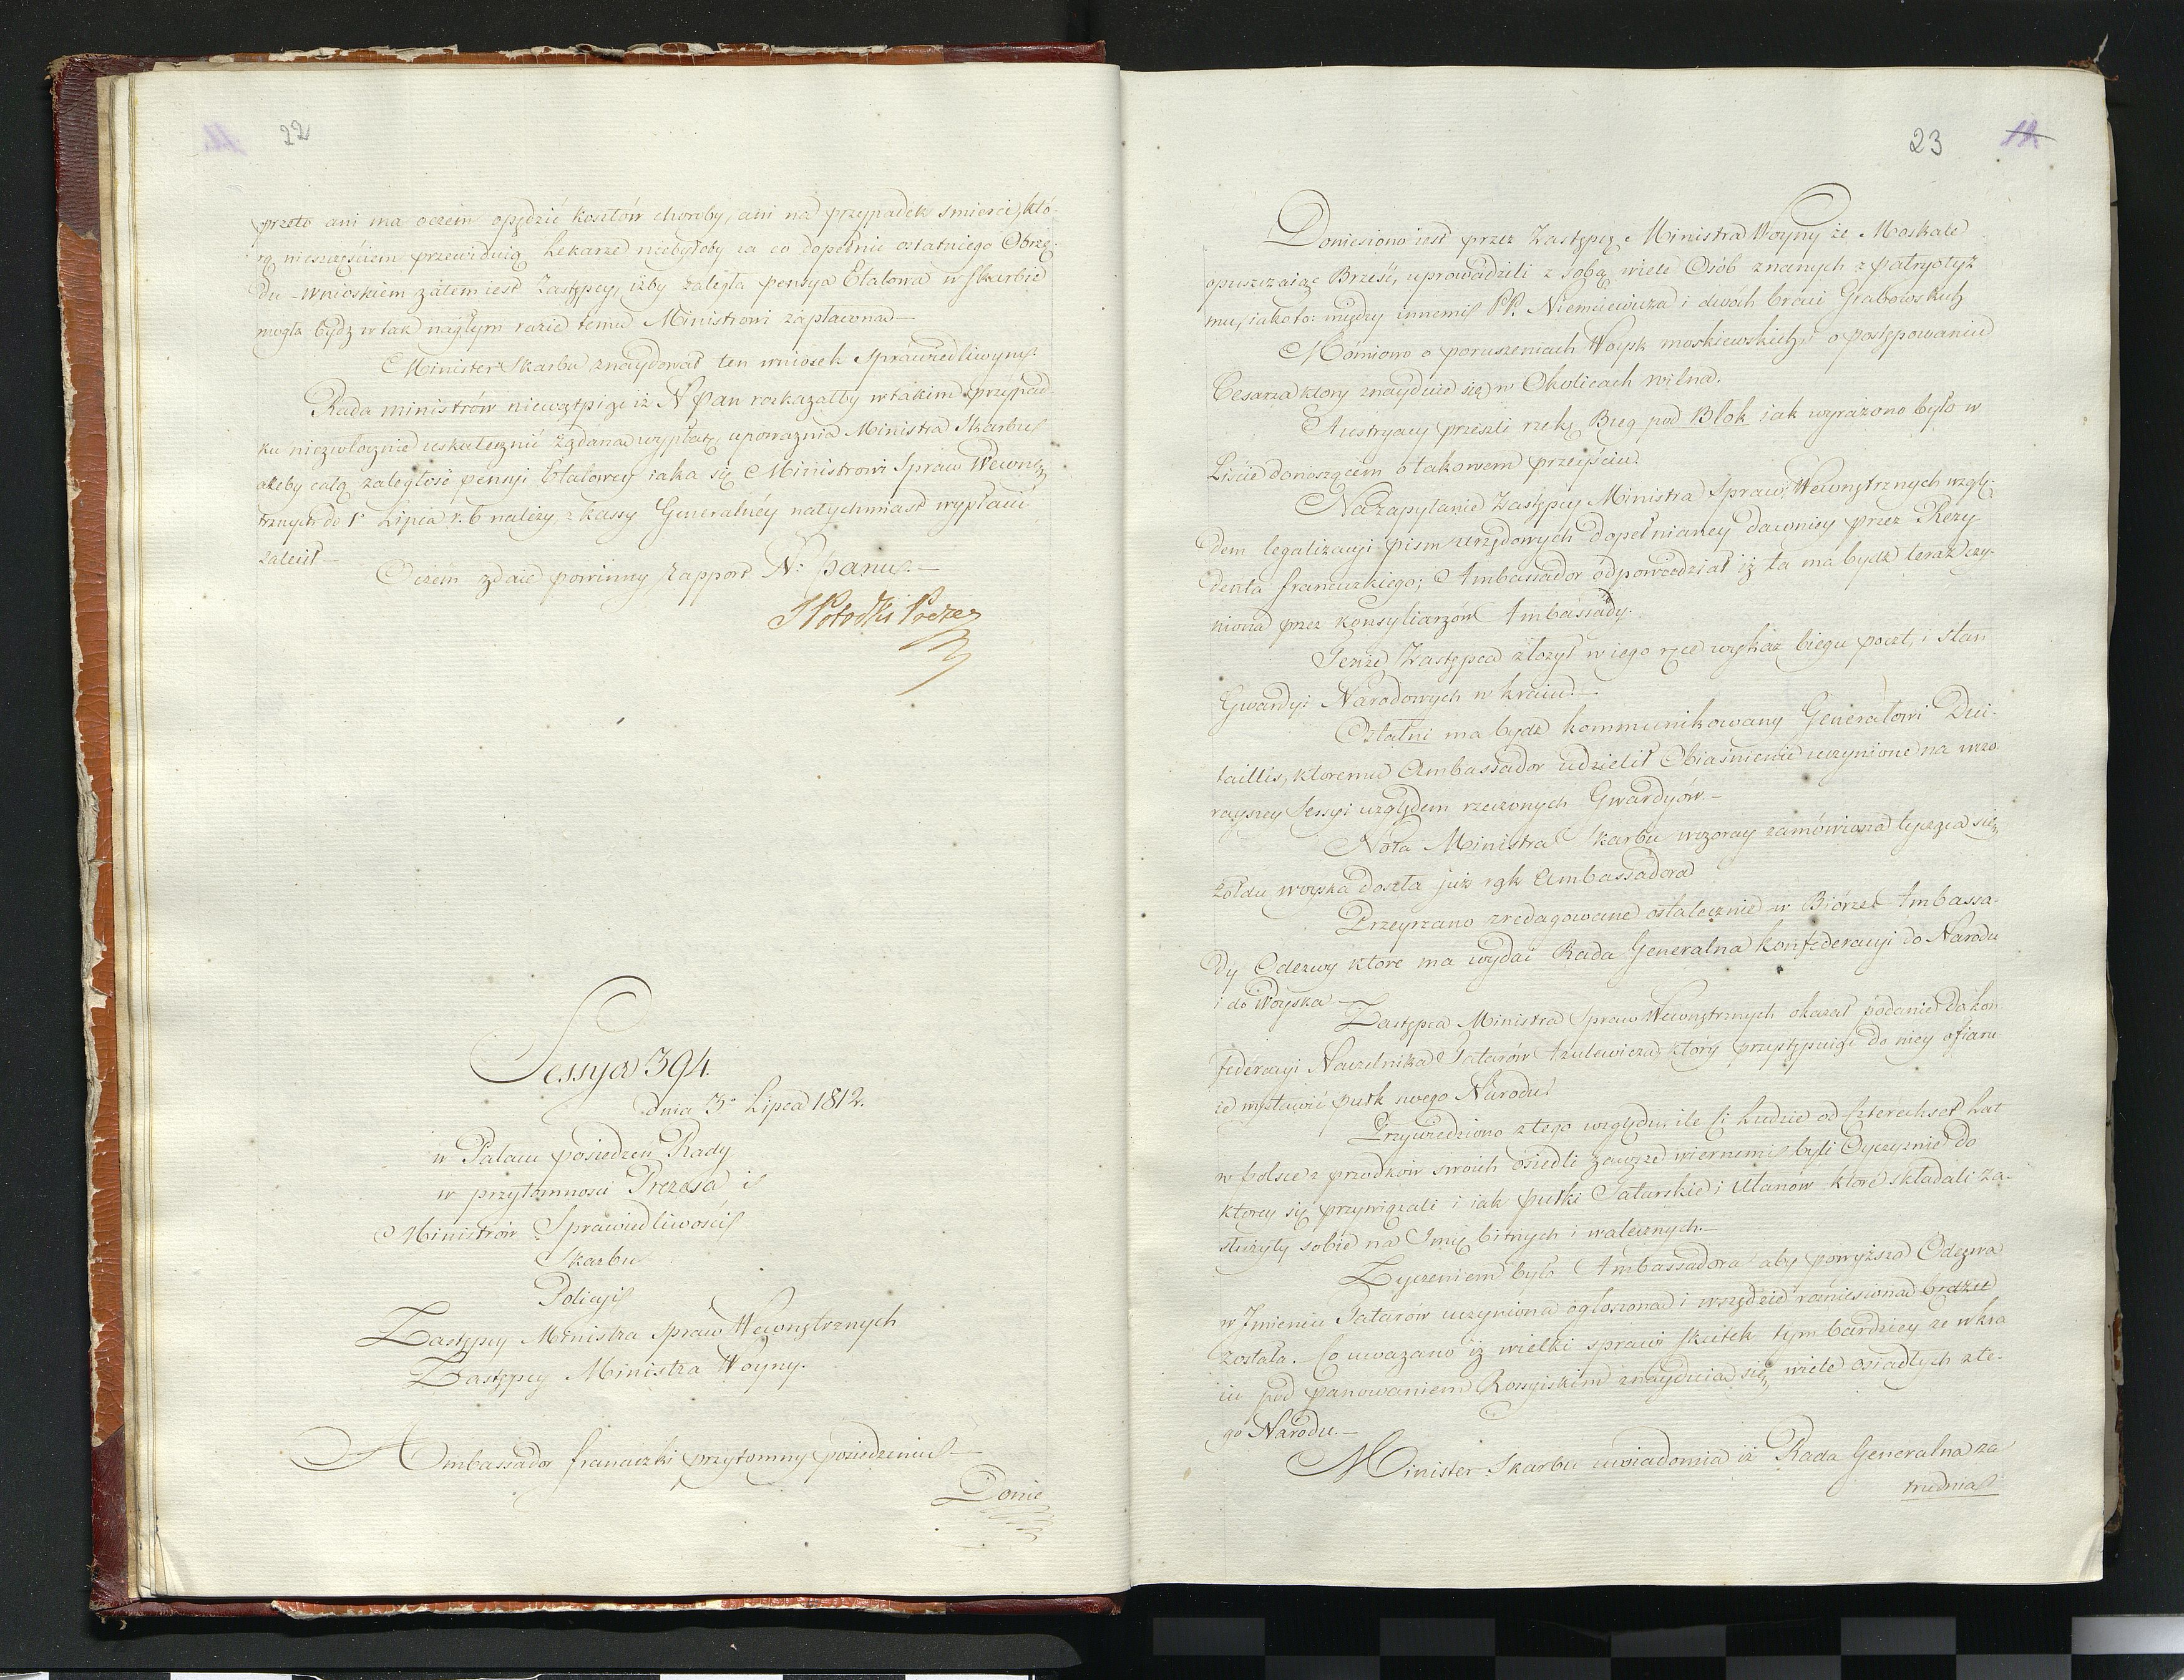 22
przeto ani ma oczem opędzić kosztów choroby, ani na przypadek smierci, któ-
rą nieszczęściem przewiduią Lekarze niebyłoby za co dopełnić ostatniego Obrzę-
du – Wnioskiem zatem iest Zastępcy, iżby zaległa pensya Etatowa w Skarbie
mogła bydź w tak nagłym razie temu Ministrowi zapłacona –
Minister Skarbu znaydował ten wniosek sprawiedliwym.
Rada ministrów niewątpiąc iż N Pan rozkazałby w takim przypad-
ku niezwłocznie uskutecznić żądaną wypłatę, upoważnia Ministra Skarbu
ażeby całą zaległość pensyi Etatowey iaka się Ministrowi Spraw Wewnę-
trznych do 1o Lipca r. b należy z kassy Generalnéy natychmiast wypłacić
zalecił –
O czém zdaie powinny Rapport N: Panu. –
S Potocki Prezes
Sessya 394.
dnia 3o Lipca 1812.
w Pałacu posiedzeń Rady
w przytomnosci Prezesa i
Ministrów Sprawiedliwości
Skarbu
Policyi
Zastępcy Ministra Spraw Wewnętrznych
Zastępcy Ministra Woyny.
Ambassador francuzki przytomny posiedzeniu –
Donie
23
Doniesiono iest przez Zastępcę Ministra Woyny że Moskale
opuszczaiąc Brześć, uprowadzili z sobą wiele Osób znanych z patryotyz
mu, iakoto: między innemi PP. Niemcewicza i dwóch braci Grabowskich
Mówiono o poruszeniach Woysk moskiewskich, i o postępowaniu
Cesarza ktory znayduie się w Okolicach Wilna.
Austryacy przeszli rzekę Bug pod Błok iak wyrażono było w
Liście donoszącem o takowem przeyściu.
Na zapytanie Zastępcy Ministra Spraw Wewnętrznych wzglę-
dem legalizacyi pism urzędowych dopełnianey dawniey przez Rezy
denta francuzkiego; Ambassador odpowiedział iż ta ma bydź teraz czy-
niona przez Konsyliarzów Ambassady.
Tenże Zastępca złożył w iego ręce wykaz biegu poczt, i stan
Gwardyi Narodowych w kraiu. –
Ostatni ma bydź kommunikowany Generałowi Du-
taillis, ktoremu Ambassador udzielił Obiaśnienie uczynione na wczo
rayszey Sessyi względem rzeczonych Gwardyów. –
Nota Ministra Skarbu wczoray zamówiona tycząca się
żołdu woyska doszła już rąk Ambassadora
Przeyrzano zredagowane ostatecznie w Biórze Ambassa-
dy Odezwy ktore ma wydać Rada Generalna konfederacyi do Narodu
i do Woyska –
Zastępca Ministra Spraw Wewnętrznych okazał podanie do kon
federacyi Naczelnika Tatarów Azulewicza, który przystępuiąc do niey ofiaru
ie wystawić pułk swego Narodu.
Przywiedziono z tego względu, ile Ci Ludzie od czterechset Lat
w Polsce z przodków swoich osiedli zawsze wiernemi byli Oyczyznie do
ktorey się przywiązali i iak pułki Tatarskie i Ułanów które składali za-
służyły sobie na Imię bitnych i walecznych. –
Życzeniem było Ambassadora aby powyższa Odezwa
w Imieniu Tatarów uczyniona ogłoszona i wszędzie rozniesiona bydź
została. Co uważano iż wielki sprawi skutek tym bardziey że w kra
iu pod panowaniem Rossyiskim znayduia się wiele osiadłych z te-
go Narodu. –
Minister Skarbu uwiadomia iż Rada Generalna za
trudnia